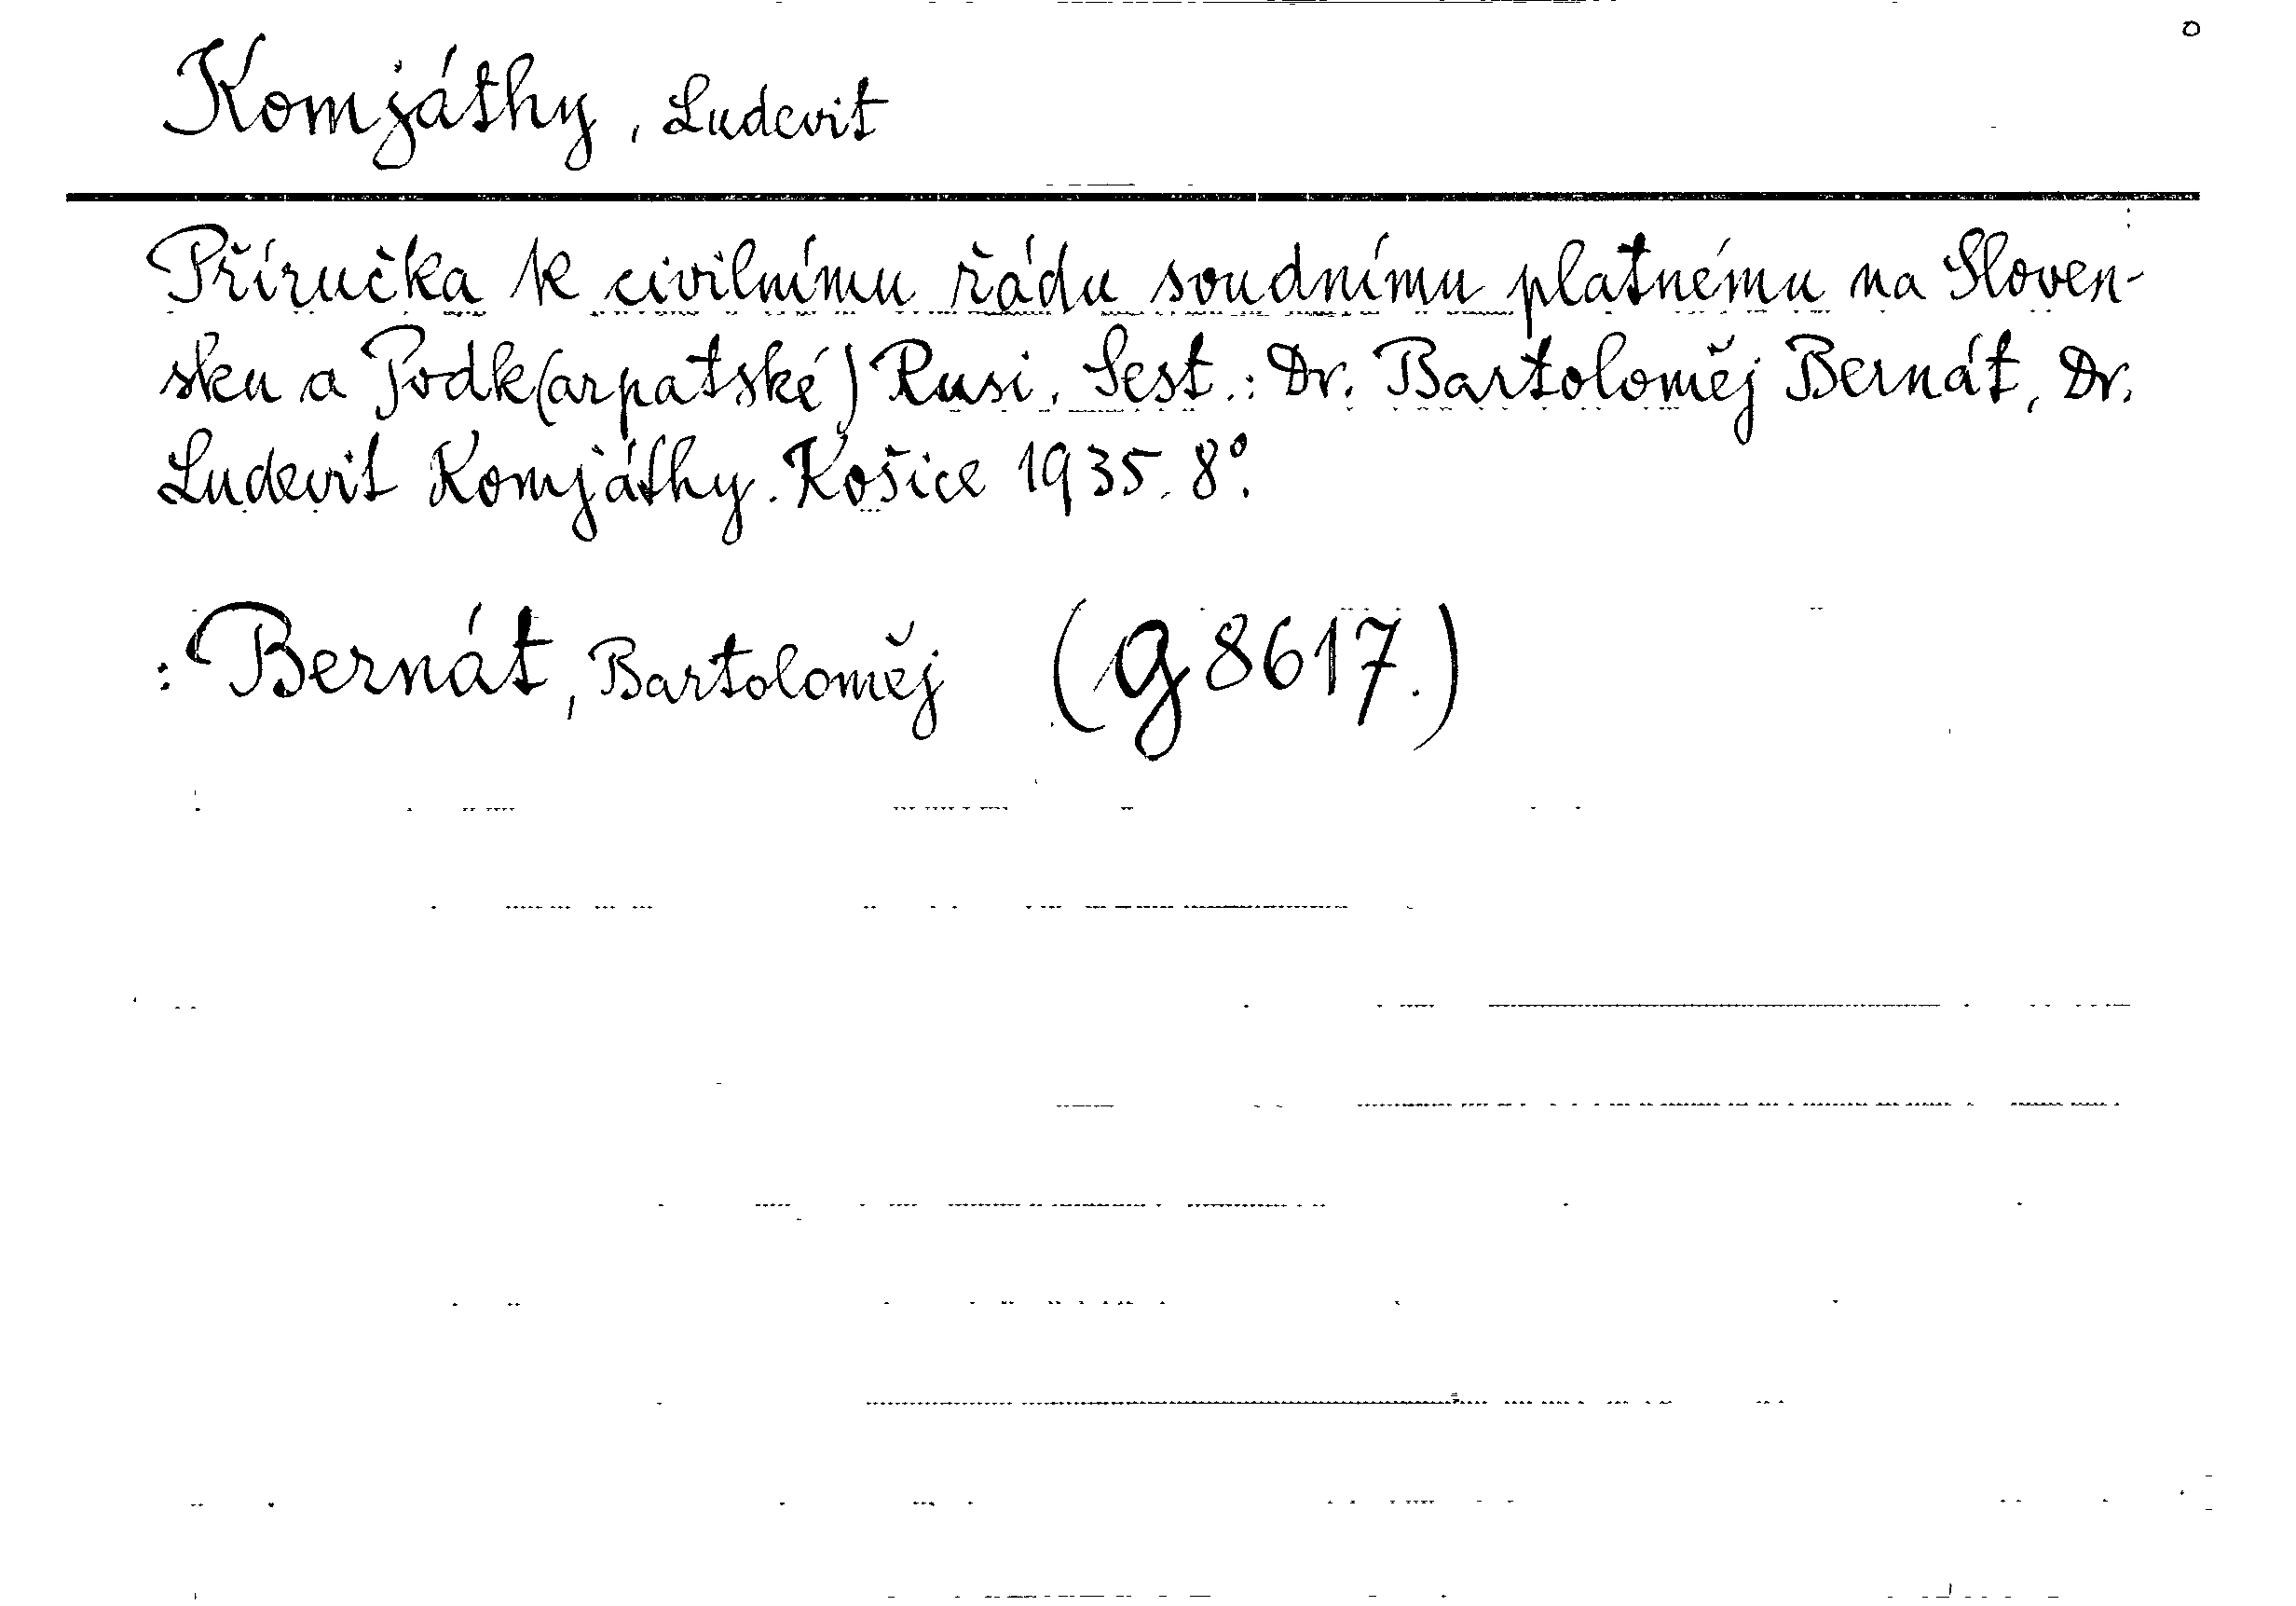 Komjáthy, Ludevit
Příručka k civilnímu řádu soudnímu platnému na Sloven-
sku a Podk(arpatské) Rusi. Sest.: Dr. Bartoloměj Bernát, Dr.
Ludevit Komjáthy. Košice 1935. 8°.
: Bernát, Bartoloměj (G 8617.)